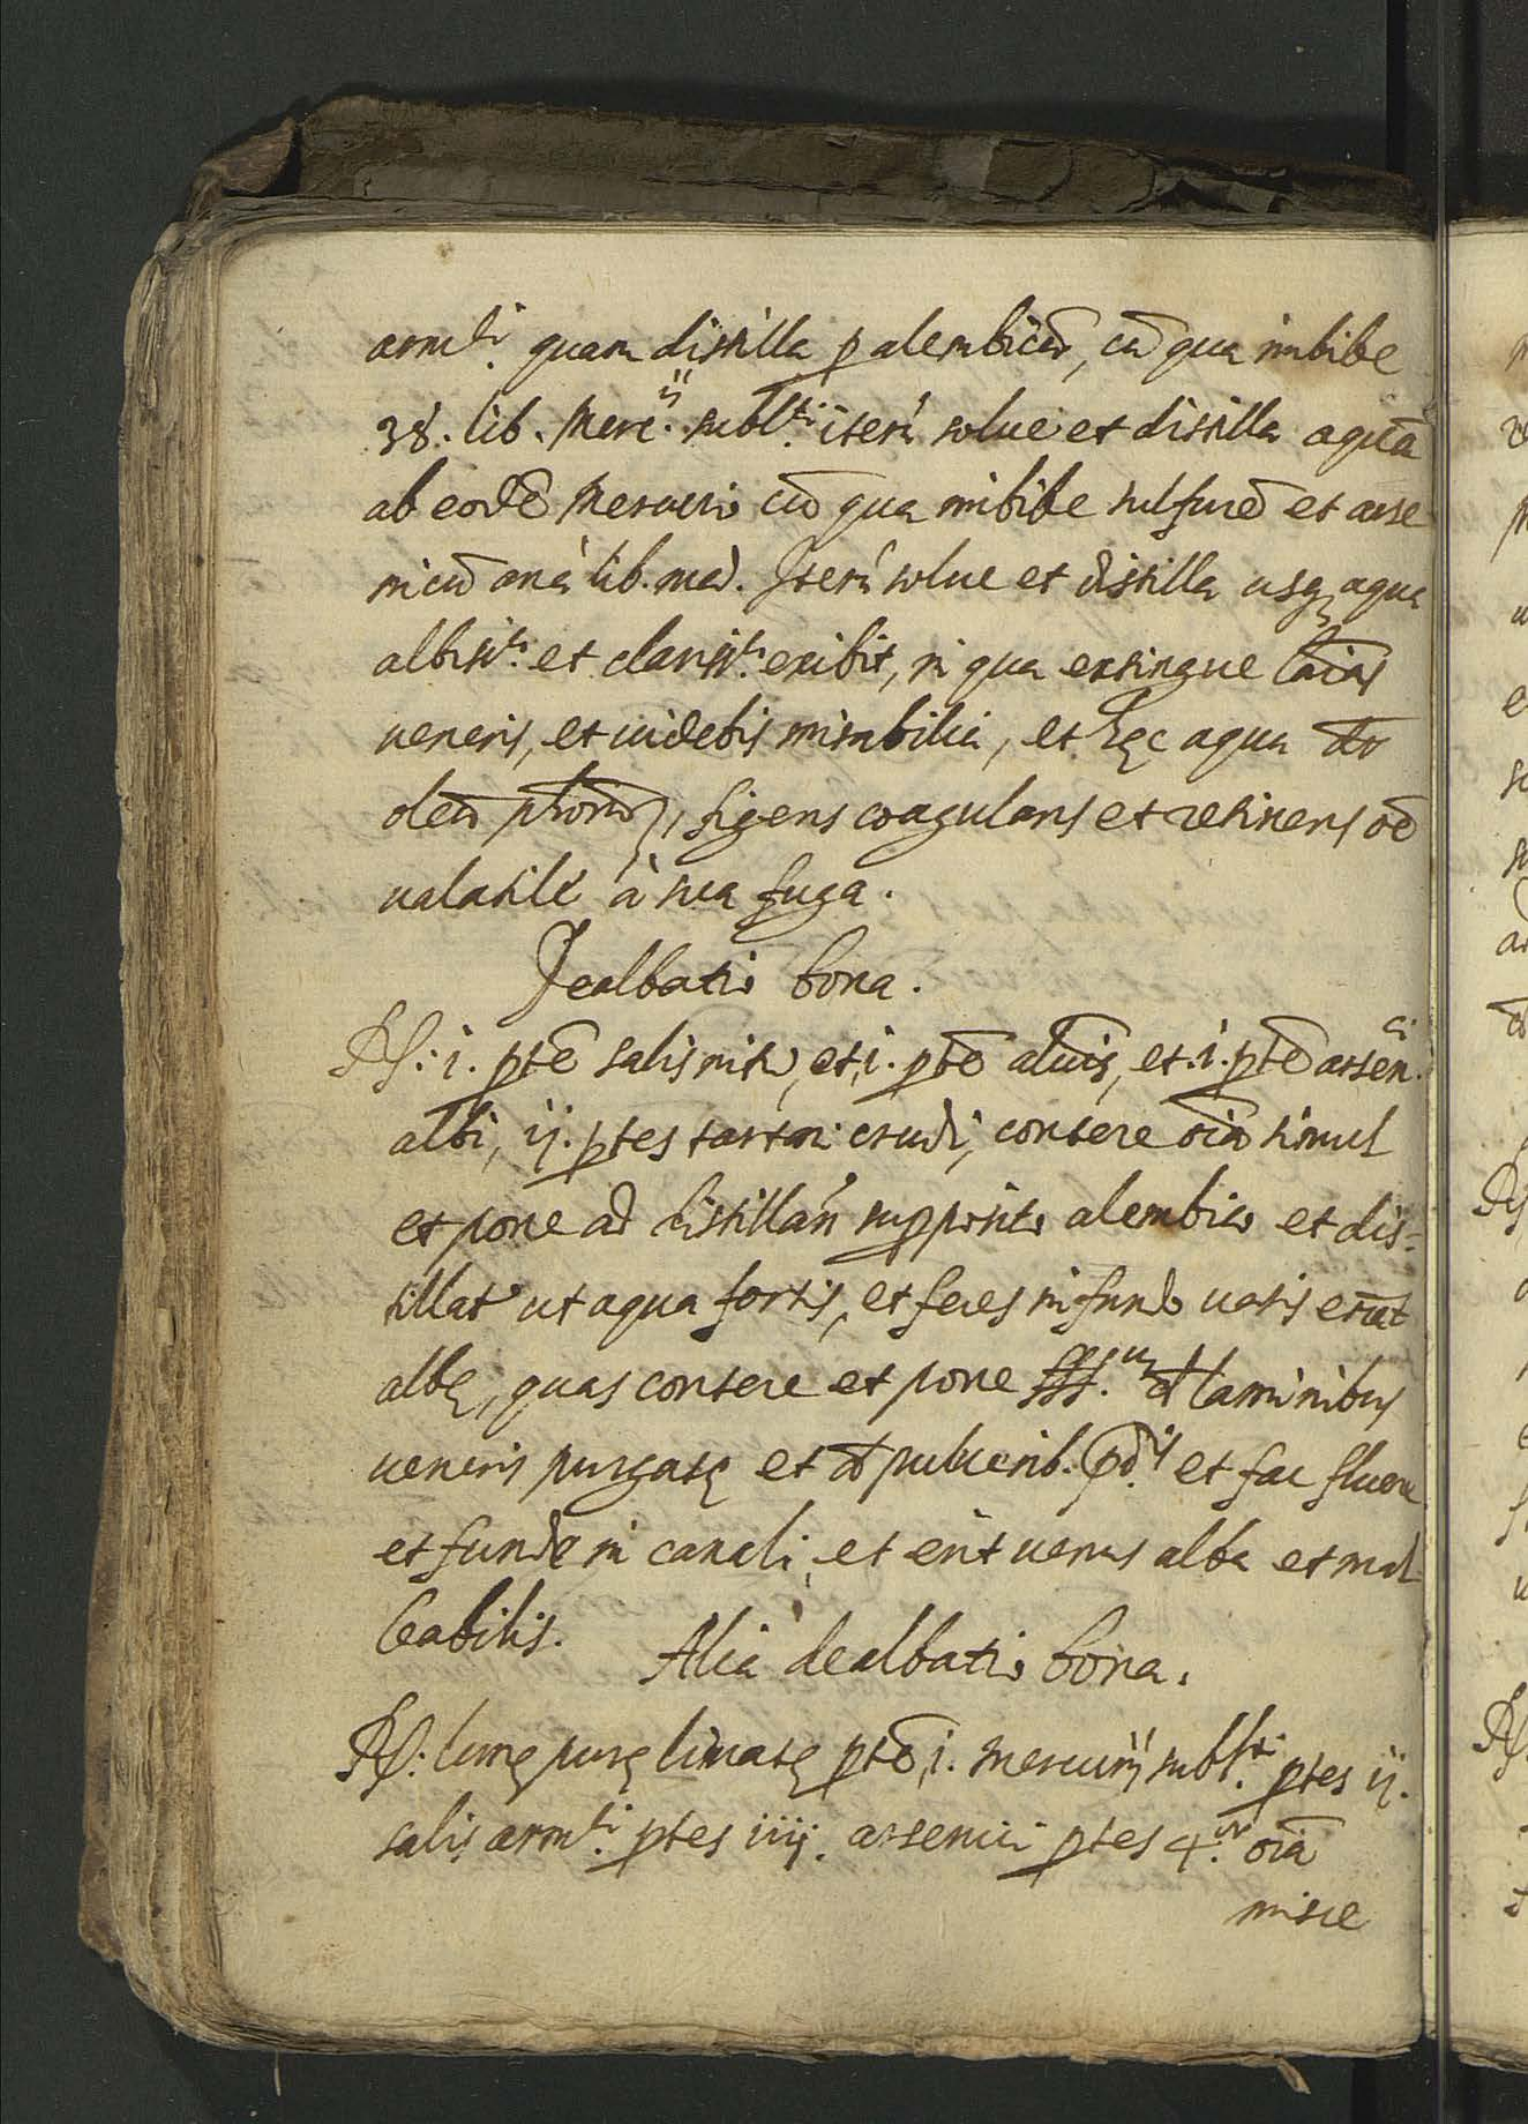 arm.ti quam distilla p alembicū, cū qua imbibe
38. lib. Merc.ij subl.ti iterū solue et distilla aquā
ab eodē Mercurio cū qua imbibe sulfurē et arse
nicū anà lib. med. Iterū solue et distilla usq; aqua
albiss.ti et clariss.ti exibit, in qua extingue lāīas
ueneris, et uidebis mirabilia, et hęc aqua dr̄
oleū phorū, figens coagulans et retinens oē
ualatile à sua fuga.
Dealbatio bona.
R: i. ptē salis nitri, et i. ptē aluīs, et i. ptē arsen.ci
albi, ij. ptes tartari crudi, contere oīa simul
et pone ad distillān supposito alembico et dis=
tillat ut aqua fortis, et feces in fundo uasis erāt
albę, quas contere et pone sss. cū laminibus
ueneris purgatę et cū puluerib. pd.is et fac fluere
et funde in canali, et erit uenus alba et mal=
leabilis.
Alia dealbatio bona.
R: lunę purę limatę ptē i. mercurij subl.ti ptes ij.
salis arm.ti ptes iiij. arsenici ptes 4.or oīa
misce